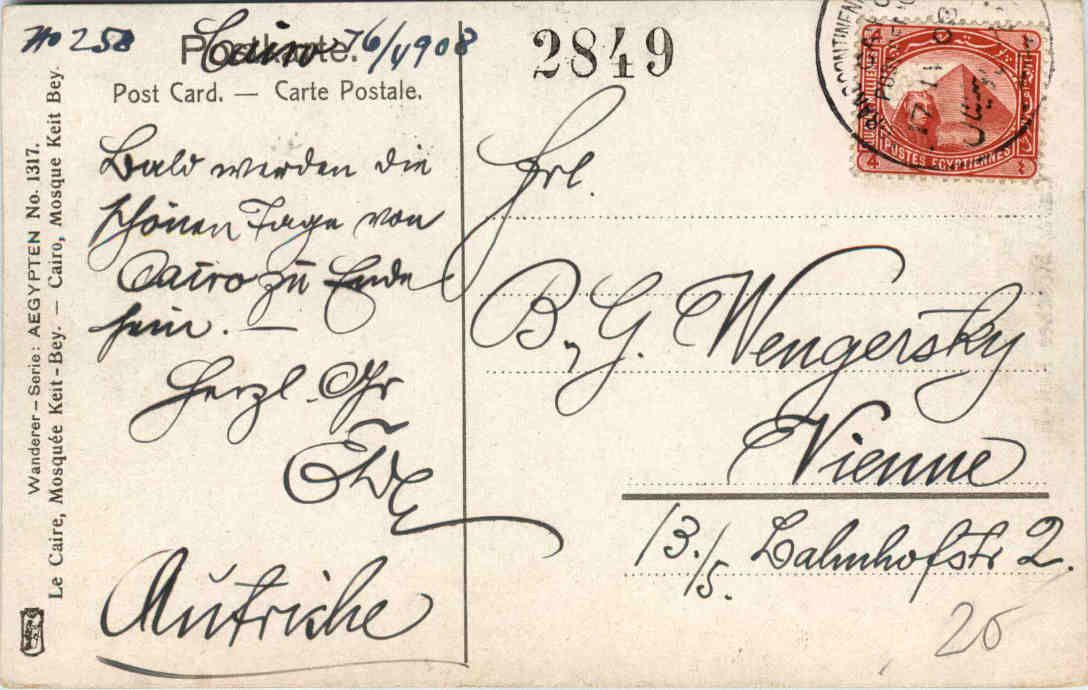 No 258
Postkarte.
Cairo 16/11908
Post Card. — Carte Postale.
2849
Bald werden die
schönen Tage von
Cairo zu Ende
sein. —
Herzl. Gr
Autriche
Frl.
B. G. Wengersky
Vienne
13./5. Bahnhofstr 2.
25
POSTES EGYPTIENNES
4
Wanderer – Serie: AEGYPTEN No. 1317.
Le Caire, Mosquée Keit-Bey. — Cairo, Mosque Keit Bey.